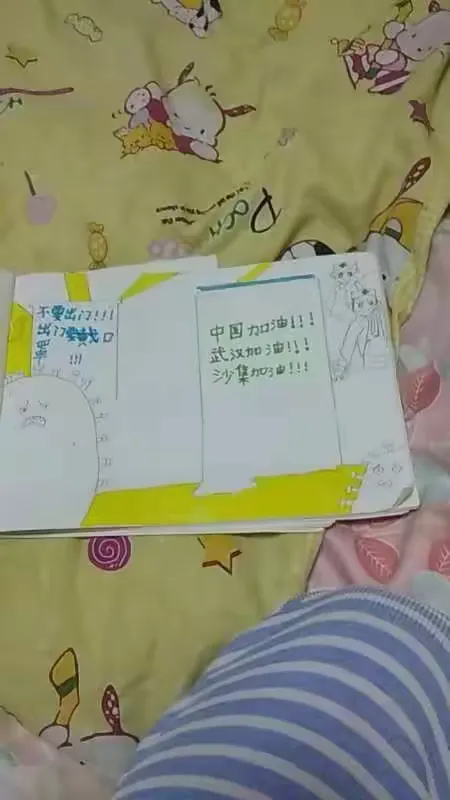 不要出门!!!
出门要戴口
罩!!!
中国加油!!!
武汉加油!!!
沙集加油!!!